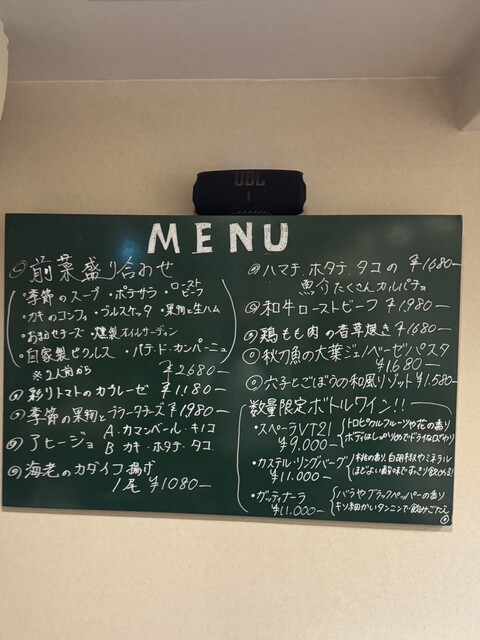 JBL
MENU
前菜盛り合わせ
・季節のスープ ・ポテサラ ・ローストビーフ
・カキのコンフィ ・ブルスケッタ ・果物と生ハム
・おまかせチーズ ・燻製オイルサーディン
・自家製ピクルス ・パテ・ド・カンパーニュ
※2人前から ¥2680−
彩りトマトのカプレーゼ ¥1,180−
季節の果物とブラータチーズ ¥1980−
アヒージョ A.カマンベール・キノコ
B カキ・ホタテ・タコ
海老のカダイフ揚げ
1尾 ¥1080−
ハマチ、ホタテ、タコの ¥1680−
魚介たくさんカルパッチョ
和牛ローストビーフ ¥1,980−
鶏もも肉の香草焼き ¥1680−
秋刀魚の大葉ジェノベーゼパスタ
¥1,680−
穴子とごぼうの和風リゾット ¥1,680−
数量限定ボトルワイン!!
・スペーラVT21 トロピカルフルーツや花の香り
¥9,000− ボディはしっかりめでドライなはずかり
・カステル・リングバーグ 林檎の香り、白胡椒やミネラル
¥11,000− ほどよい酸味ですっきり飲める!
・ガッティナーラ バラやブラックペッパーの香り
¥11,000− キメ細かいタンニンで飲みごたえ